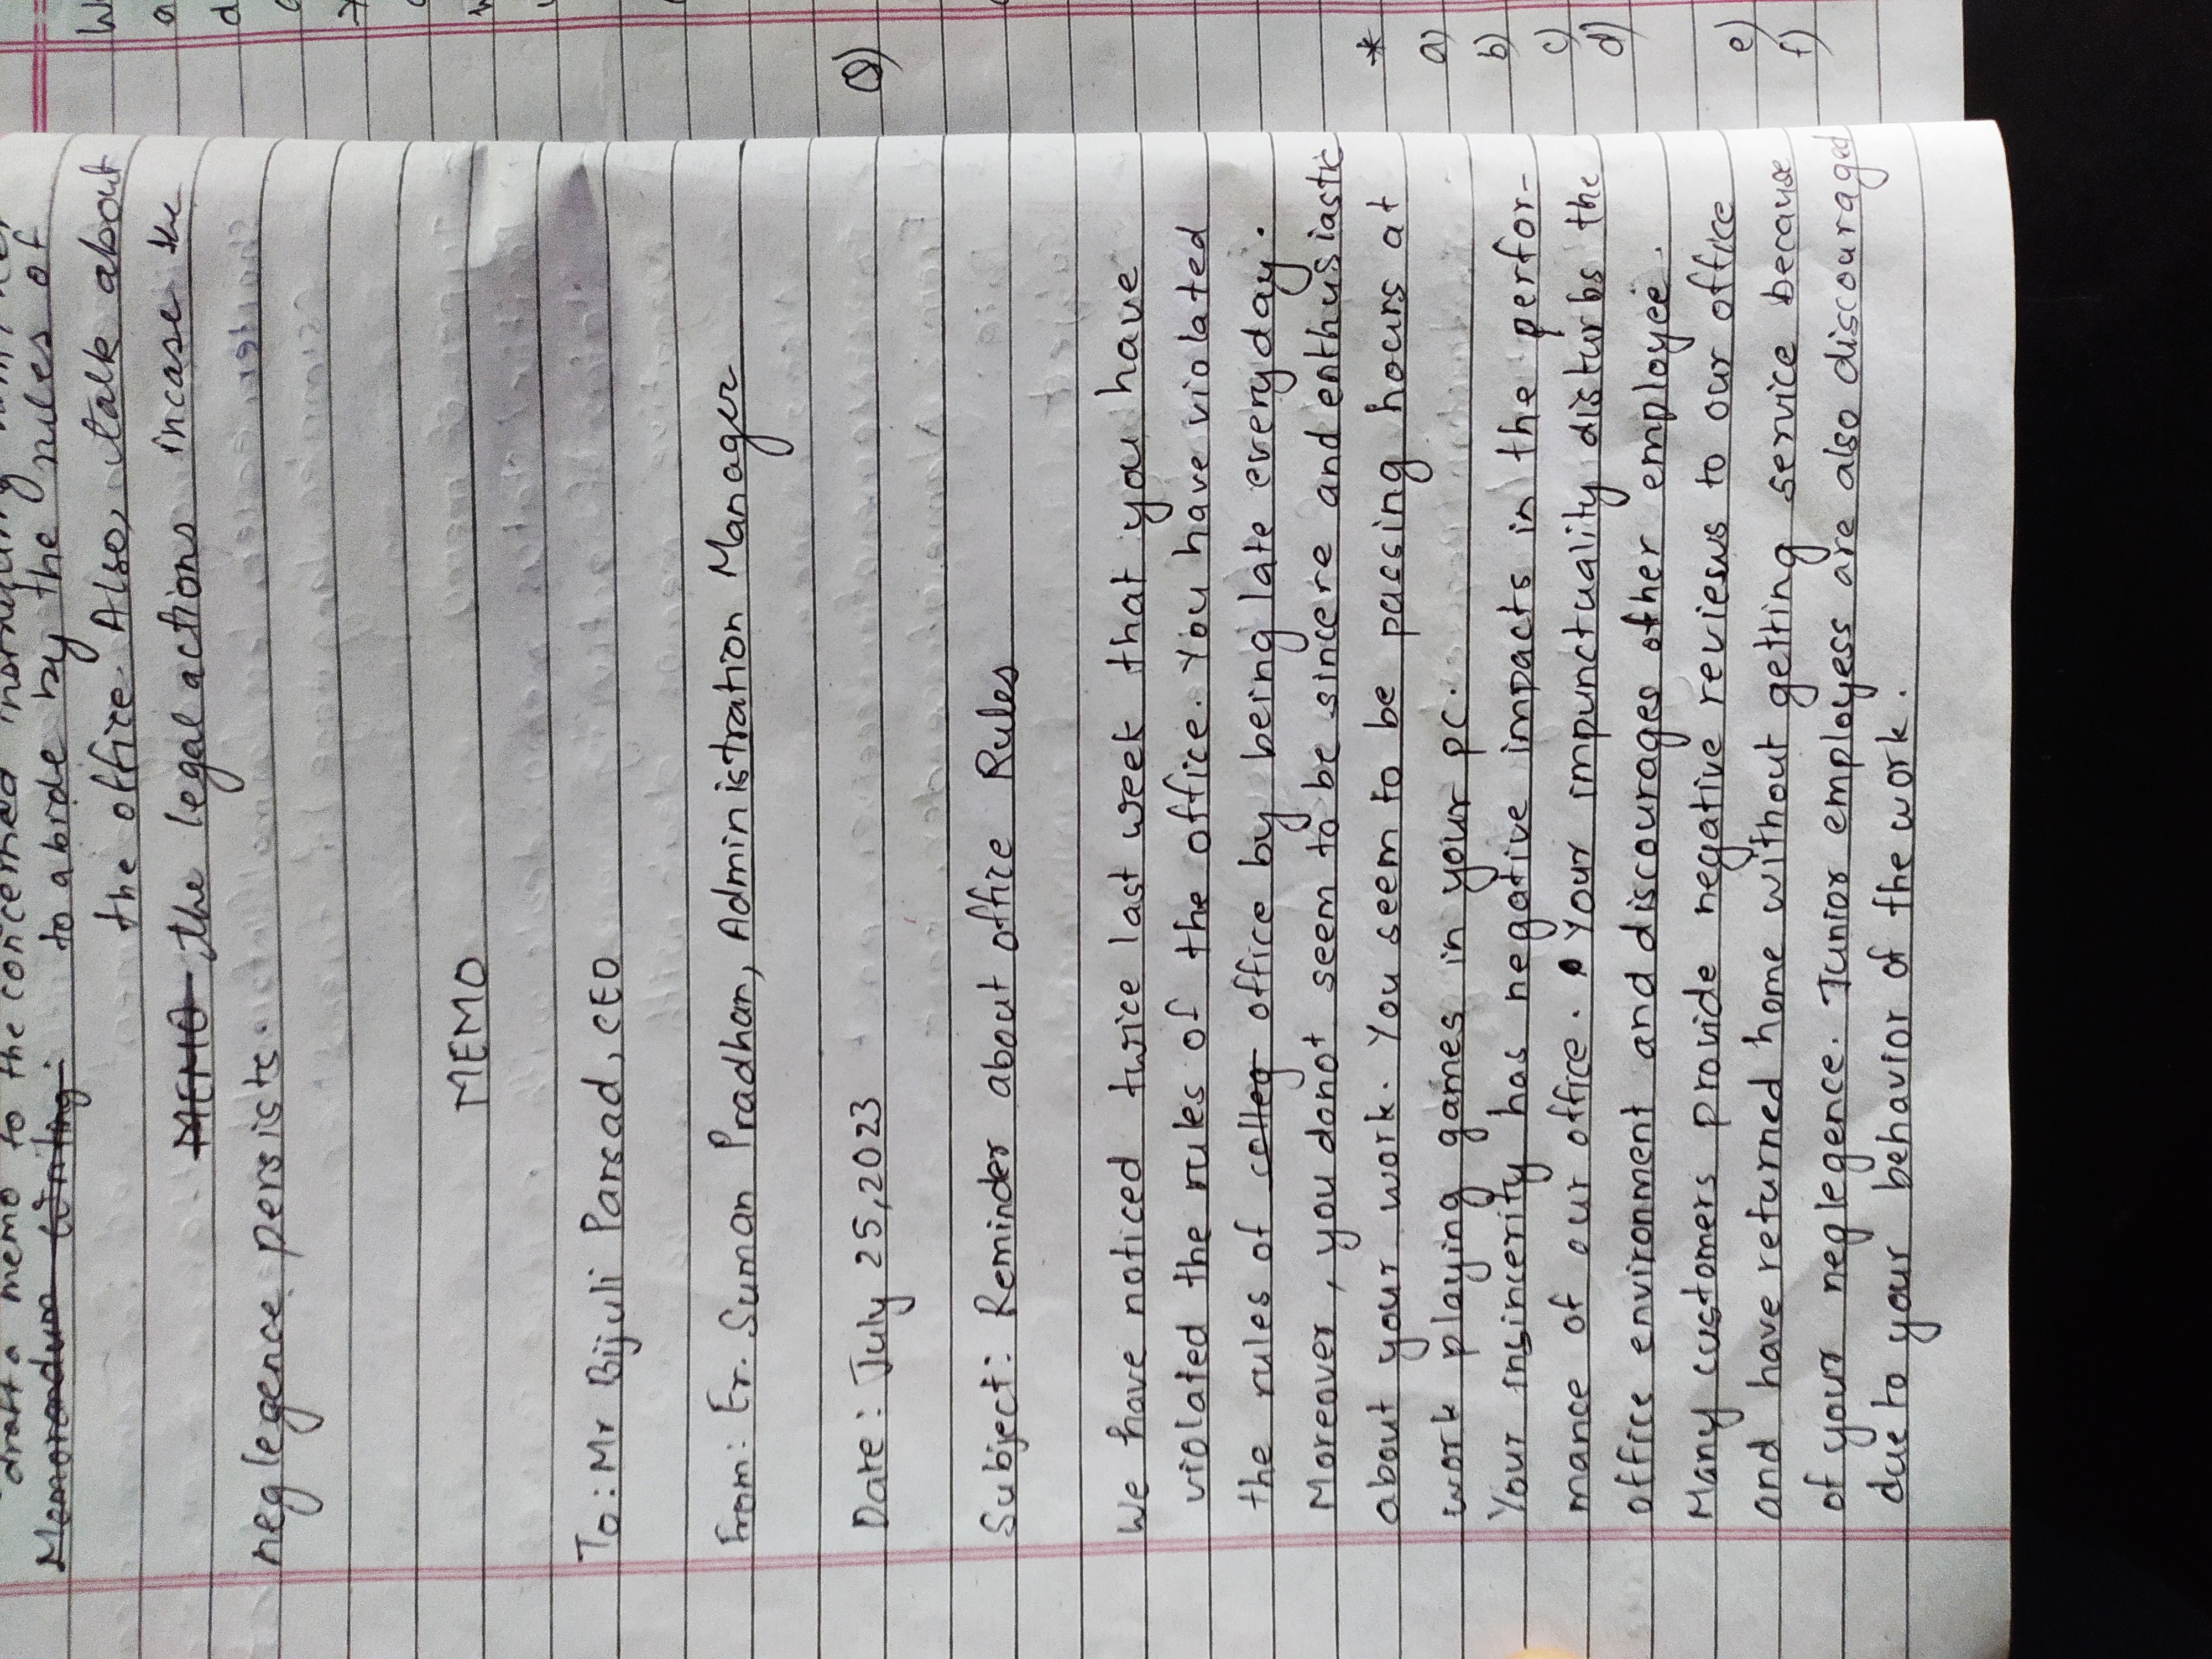 draft a memo to the concerned
Memorandum Writing: to abide by the rules of
the office. Also, talk about
MEMO the legal actions incase the
neglegence persists.
MEMO
To: Mr Bijuli Parsad, CEO
From: Er. Suman Pradhan, Administration Manager
Date: July 25, 2023
Subject: Reminder about office Rules
We have noticed twice last week that you have
violated the rules of the office. You have violated
the rules of colleg office by being late everyday.
Moreover, you donot seem to be sincere and enthusiastic
about your work. You seem to be passing hours at
work playing games in your pc.
Your insincerity has negative impacts in the perfor-
mance of our office. Your impunctuality disturbs the
office environment and discourages other employee.
Many customers provide negative reviews to our office
and have returned home without getting service because
of your neglegence. Junior employess are also discouraged
due to your behavior of the work.
Q)
*
a)
b)
c)
d)
e)
f)